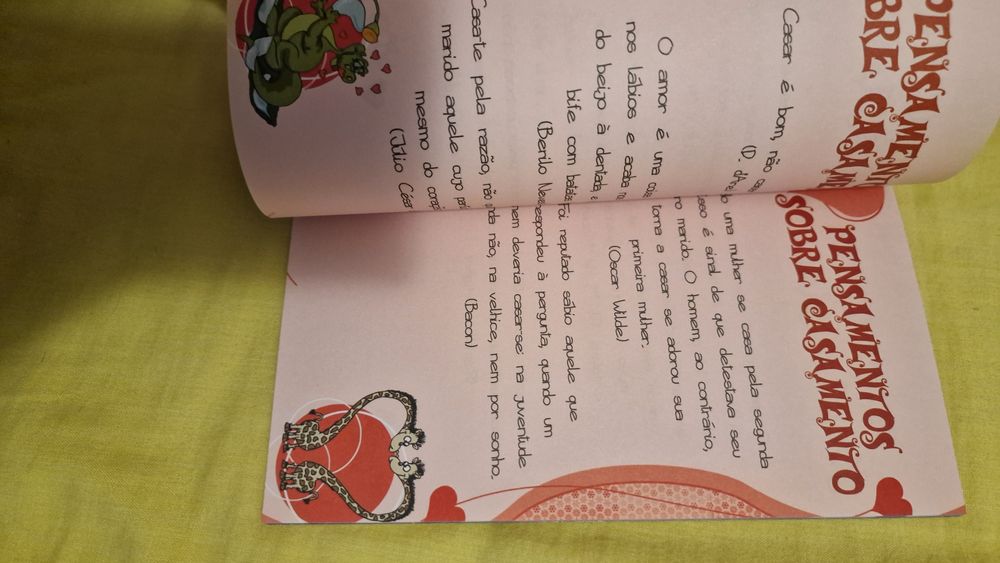 PENSAMENTO
OBRE CASAME
Casar é bom, não
(D.
O amor é uma
nos lábios e acaba
do beijo à dentada, e
bife com batatas
(Berilo Neves
Casa-te pela razão, não
marido aquele cujo
mesmo do
(Júlio César
PENSAMENTOS
SOBRE CASAMENTO
uma mulher se casa pela segunda
isso é sinal de que detestava seu
marido. O homem, ao contrário,
torna a casar se adorou sua
primeira mulher.
(Oscar Wilde)
Foi reputado sábio aquele que
respondeu à pergunta, quando um
deveria casar-se: na juventude
não, na velhice, nem por sonho.
(Bacon)